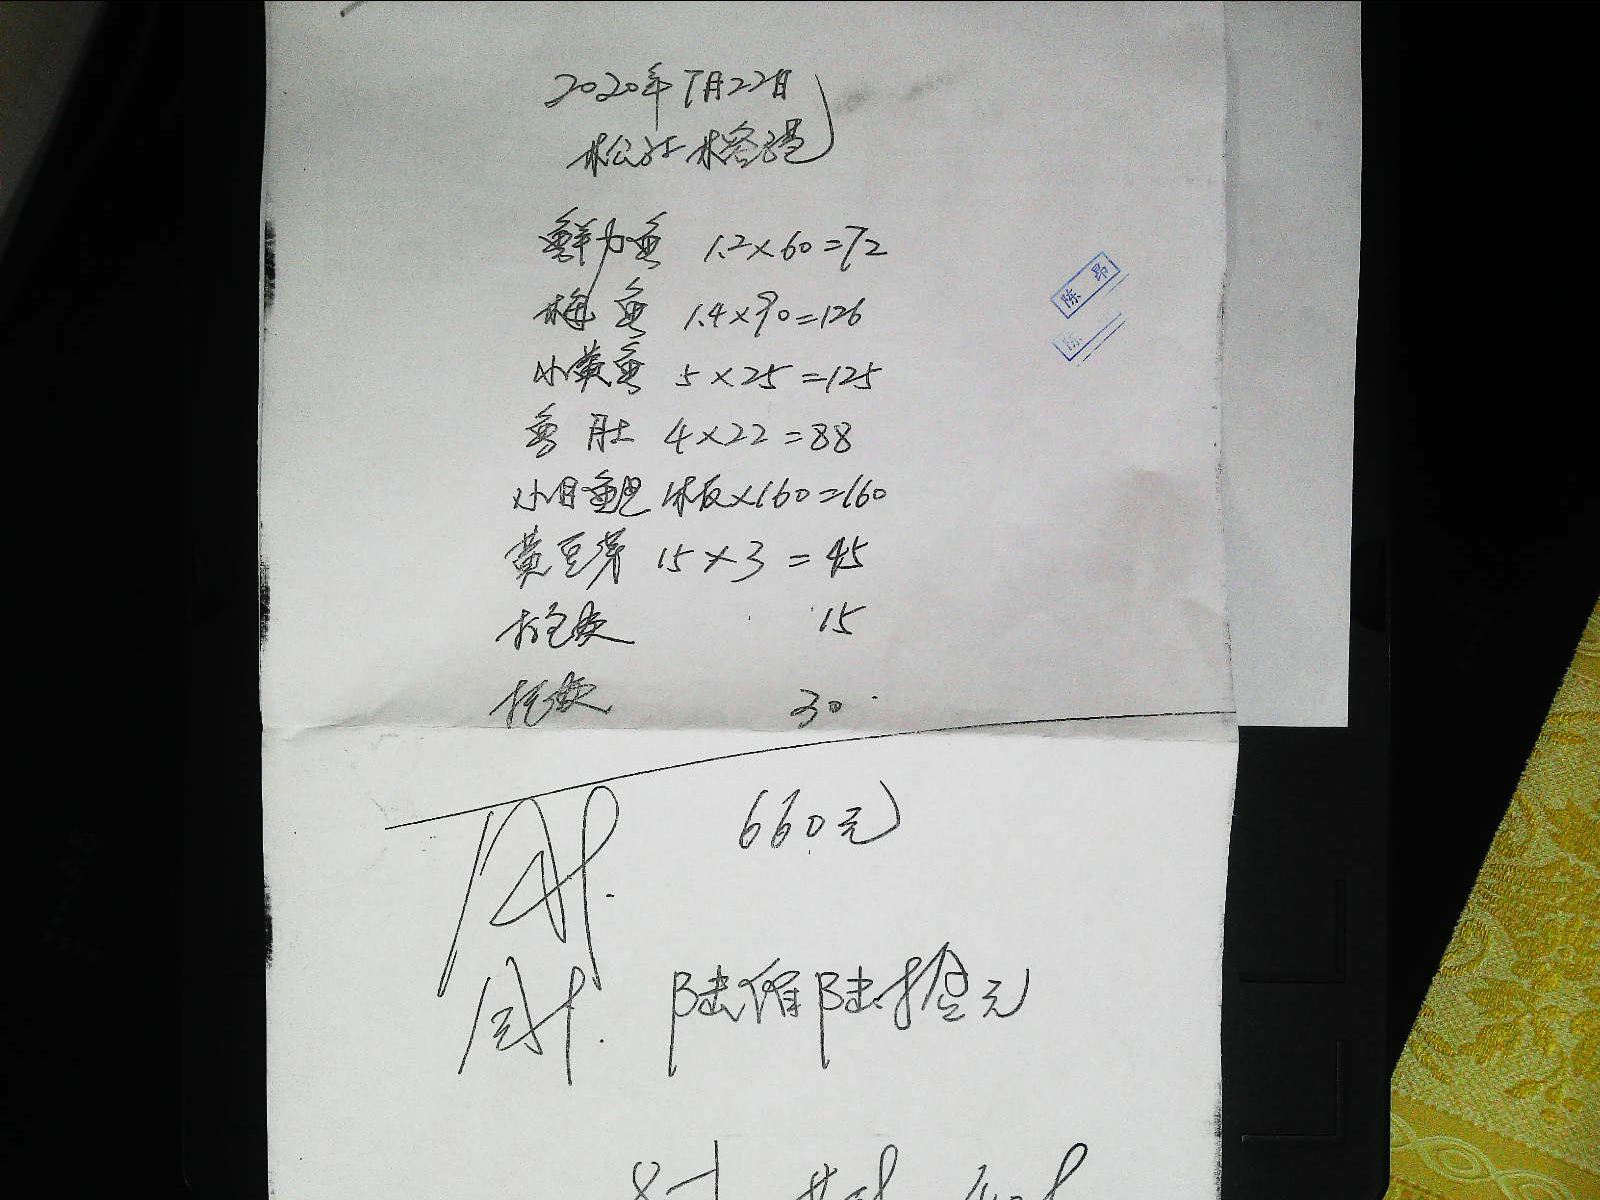 2020年7月22日
松江榕港
鲜力鱼 1.2×60=72
梅鱼 1.4×90=126
小黄鱼 5×25=125
鱼肚 4×22=88
小目鱼 1板×160=160
黄豆芽 15×3=45
打包费 15
托费 30
660元
陆佰陆拾元
陈昂
陈